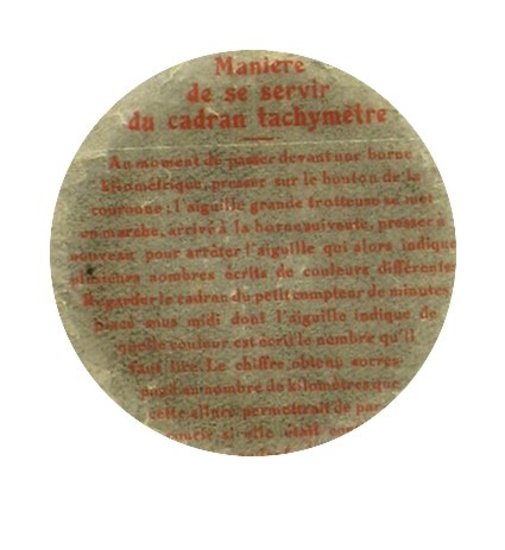 Manière
de se servir
du cadran tachymètre
Au moment de passer devant une borne
kilométrique, presser sur le bouton de la
couronne; l'aiguille grande trotteuse se met
en marche, arrivé à la borne suivante, presser à
nouveau pour arrêter l'aiguille qui alors indique
plusieurs nombres écrits de couleurs différentes
Regarder le cadran du petit compteur de minutes
placé sous midi dont l'aiguille indique de
quelle couleur est écrit le nombre qu'il
faut lire. Le chiffre obtenu corres-
pond au nombre de kilomètres que
cette allure permettrait de par
courir si elle était